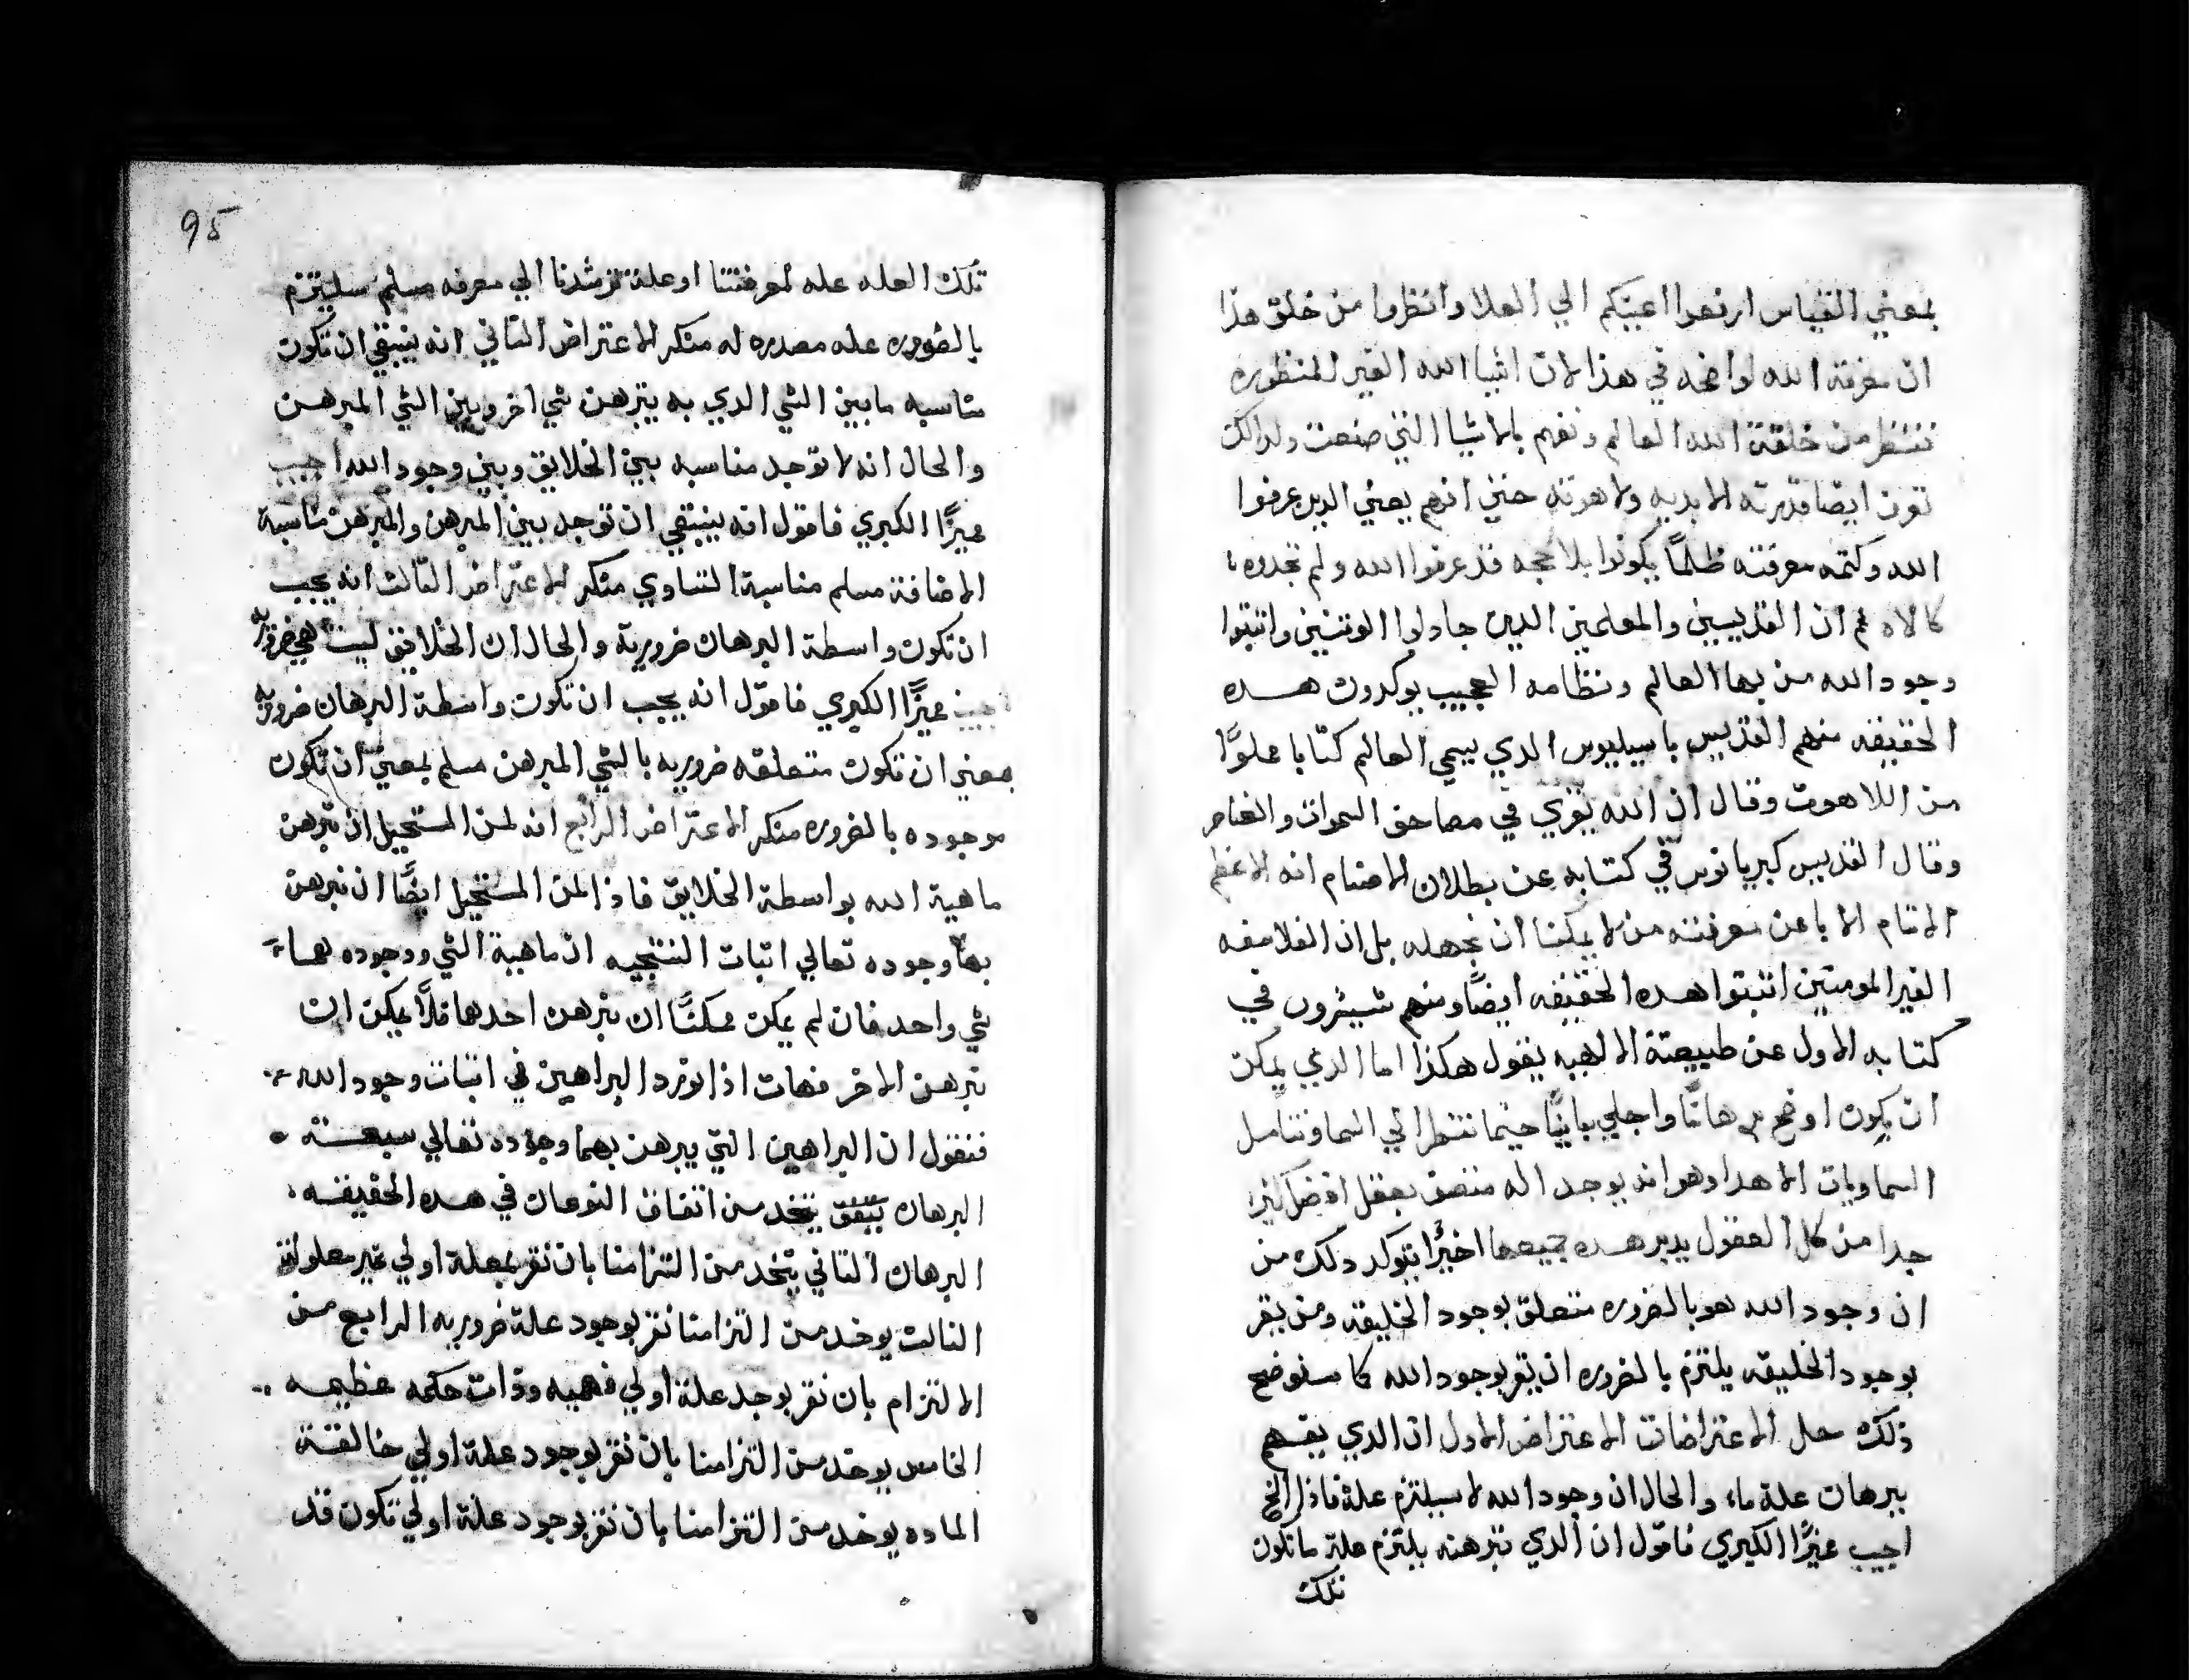 بمعني القياس ارفعوا اعينكم الي العلا وانظروا من خلق هذا
ان معرفة الله لواضحه في هذا لان اشيا الله الغير المنظوره
تنتظر من خلقة الله العالم وتفهم بالاشيا التي صنعت ولدالك
تون ايضا قدرته الابديه ولاهوته حتي انهم يعني الدين عرفوا
الله وكتمه معرفته ظلمًا يكونوا بلا حجه قد عرفوا الله ولم تجدوه
كالاه ثم ان القديسين والمعلمين الدين جادلوا الوتنين واتبتوا
وجود الله من بها العالم ونظامه العجيب يوكدون هده
الحقيقه منهم القديس باسيليوس الدي يسمي العالم كتابا مملوًا
من اللاهوت وقال ان الله يقري في مصاحف السموات والعناصر
وقال القديس كبريانوس في كتابه عن بطلان الاصنام انه لاعظم
الاتام الاباعن معرفته من لا يمكننا ان نجهله بل ان الفلاسفه
الغير المومنين اتبتوا هده الحقيقه ايضًا ومنهم شيشرون في
كتابه الاول عن طبيعتة الالهيه يقول هكذا اما الدي يمكن
ان يكون اوضح برهانًا واجلي بيانًا حينما ننظر الي السما ونتامل
السماويات الا هدا وهو انه يوجد اله متصف بعقل افضل كثيرا
جدا من كل العقول يدبر هده جميعها اخيرًا يتوكد دلك من
ان وجود الله هو بالضروره متعلق بوجود الخليقه ومن يقر
بوجود الخليقه يلتزم بالضروره ان يقر بوجود الله كما سنوضح
ذلك حل الاعتراضات الاعتراض الاول ان الدي يفهم
ببرهان علة ما، والحال ان وجود الله لا سيلتزم علة فاذا الخ
اجيب مميزًا الكبري فاقول ان الدي تبرهنه يلتزم علة ما تكون
تلك
95
تلك العله عله لمعرفتنا او علة ترشدنا الي معرفه مسلم سليتزم
بالضوره عله مصدره له منكر الاعتراض التاني انه ينبغي ان تكون
مناسبه مابين الشي الدي به يتبرهن شي اخر وبين الشي المبرهن
والحال انه لا توجد مناسبه بين الخلايق وبين وجود الله اجيب
مميزًا الكبري فاقول انه ينبغي ان توجد بين المبرهن والمبرهن مناسبة
الاضافة مسلم مناسبة التساوي منكر الاعتراض التالت انه يجب
ان تكون واسطة البرهان ضرورية والحال ان الخلايق ليست هي ضروريه
اجيب مميزًا الكبري فاقول انه يجب ان تكون واسطة البرهان ضروريه
بمعني ان تكون متعلقه ضروريه بالشي المبرهن مسلم بمعني ان تكون
موجوده بالضروره منكر الاعتراض الرابع انه لمن المستحيل ان نبرهن
ماهية الله بواسطة الخلايق فاذا لمن المستحيل ايضًا ان نبرهن
بها وجوده تعالي اتبات النتيجيه ان ماهية الشي ووجوده هما
شي واحد فان لم يكن ممكنًا ان نبرهن احدها فلا يمكن ان
نبرهن الاخر فهات اذا نورد البراهين في اتبات وجود الله
فنقول ان البراهين التي يبرهن بهما وجوده تعالي سبعـة
البرهان يتخد من اتفاق النوعان في هده الحقيقـه
البرهان التاني يتخد من التزامنا بان نقر بعلة اولي غير معلوله
التالت يوخد من التزامنا نقر بوجود علة ضروريه الرابع من
الالتزام بان نقر بوجد علة اولي فهميه وذات حكمه عظيمـه
الخامس يوخد من التزامنا بان نقر بوجود علة اولي خالقـة
الماده يوخد من التزامنا بان نقر بوجود علة اولي تكون قد